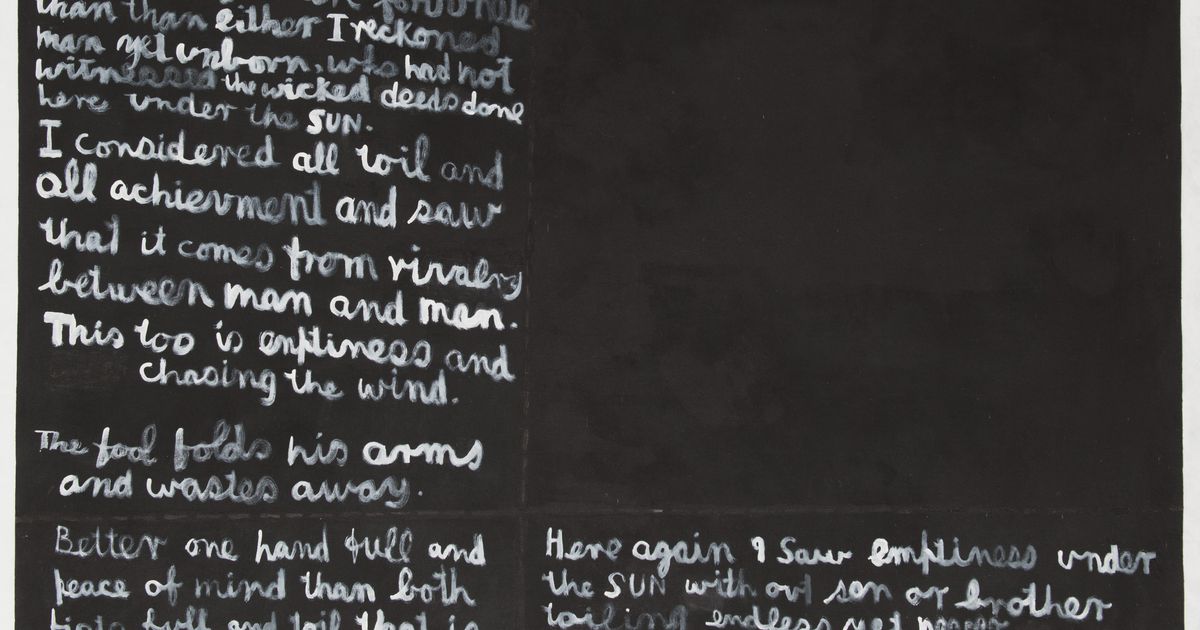 than than either I reckoned
man yet unborn, who had not
witnessed the wicked deeds done
here under the SUN.
I considered all toil and
all achievment and saw
that it comes from rivalry
between man and man.
This too is emptiness and
chasing the wind.
The fool folds his arms
and wastes away.
Better one hand full and
peace of mind than both
fists full and toil that is
Here again I saw emptiness under
the SUN with out son or brother
toiling endless yet